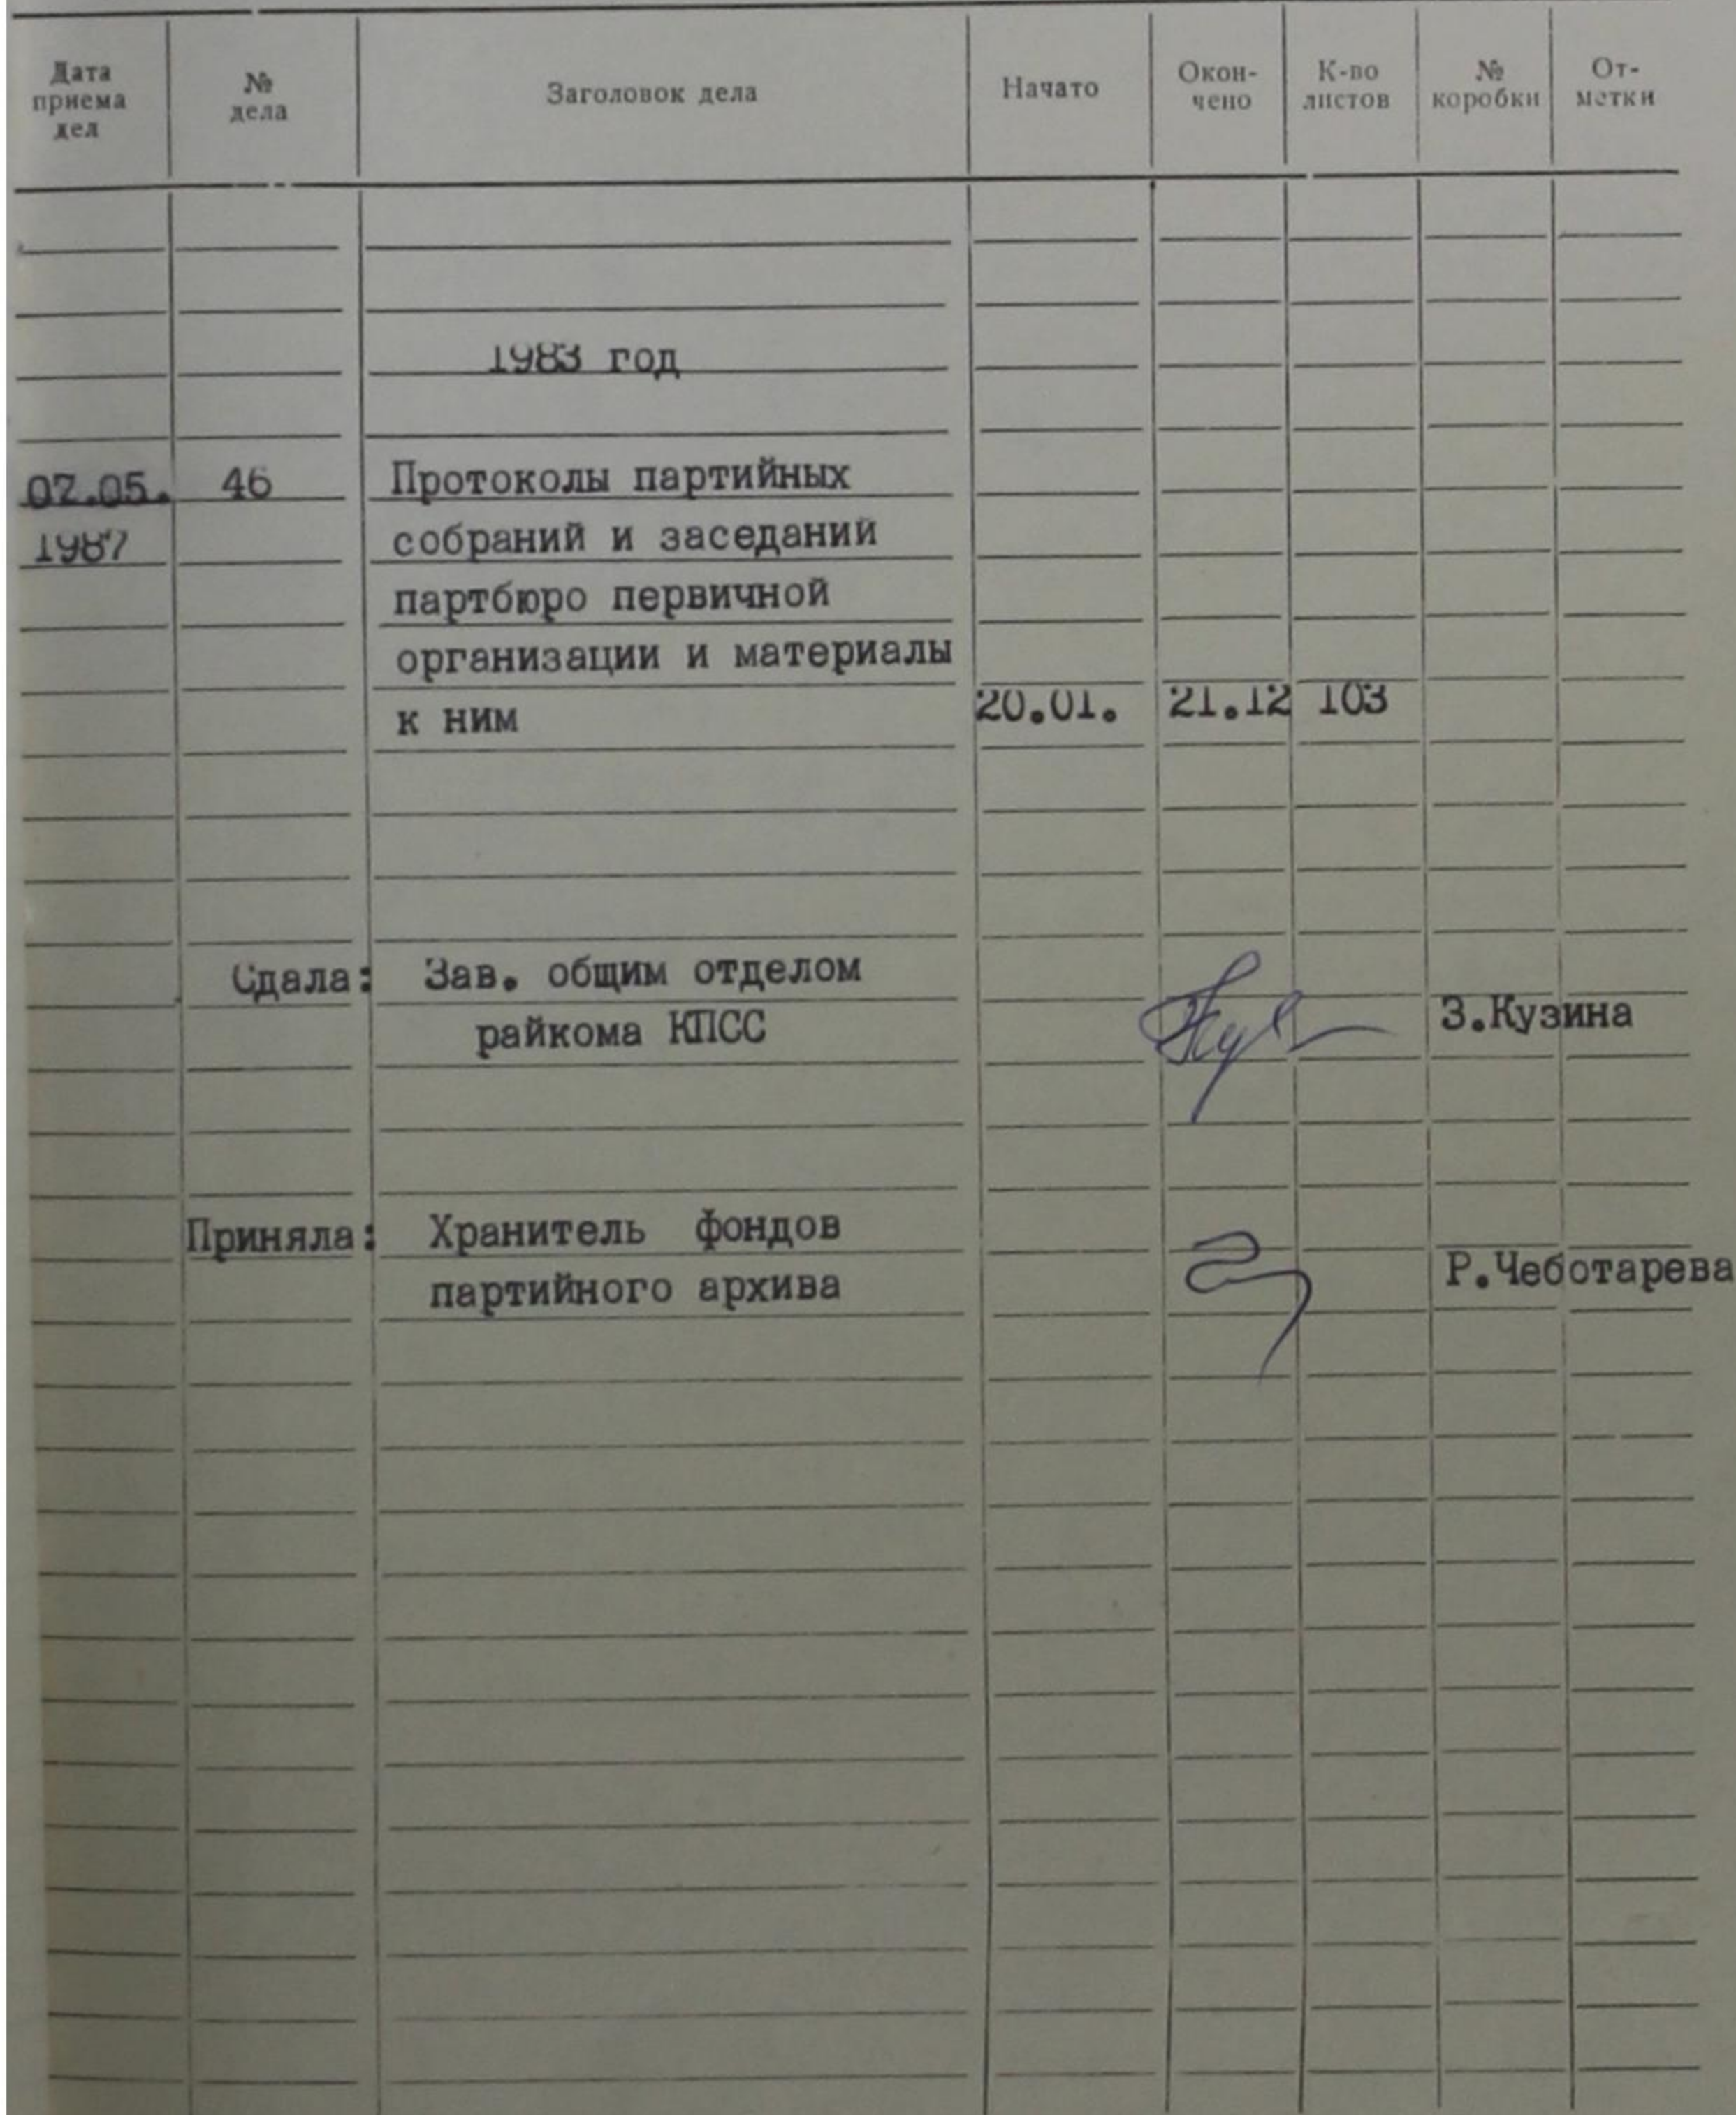 Дата приема дел № дела Заголовок дела Начато Окон- чено К-во листов № коробки От- метки
1983 год
07.05. 46 Протоколы партийных
1987 собраний и заседаний
партбюро первичной
организации и материалы
к ним 20.01. 21.12 103
Сдала: Зав. общим отделом
райкома КПСС З.Кузина
Приняла: Хранитель фондов
партийного архива Р.Чеботарева